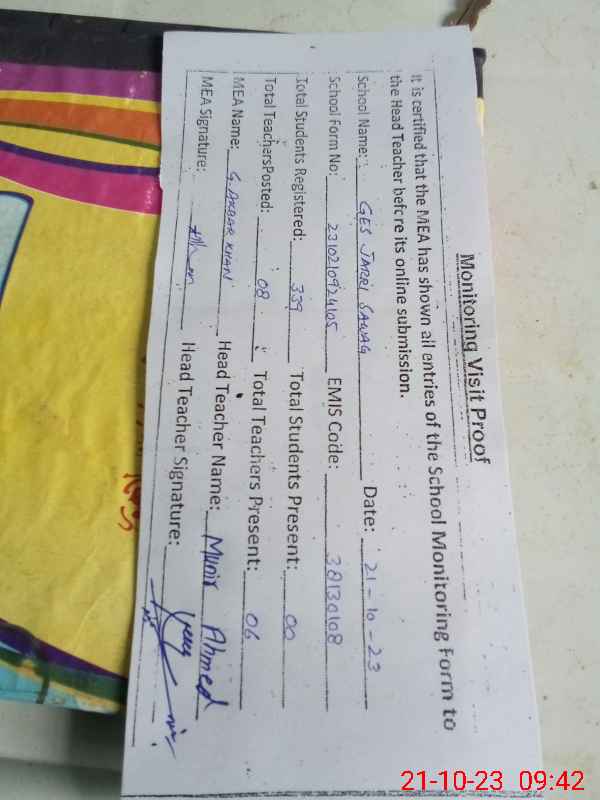 Monitoring Visit Proof
It is certified that the MEA has shown all entries of the School Monitoring Form to
the Head Teacher before its online submission.
School Name: GES JARRI SAWAG Date: 21-10-23
School Form No: 2310210924105 EMIS Code: 38130108
Total Students Registered: 339 Total Students Present: 00
Total TeachersPosted: 08 Total Teachers Present: 06
MEA Name: G. AKBAR KHAN Head Teacher Name: Munir Ahmed
MEA Signature: Head Teacher Signature:
21-10-23 09:42